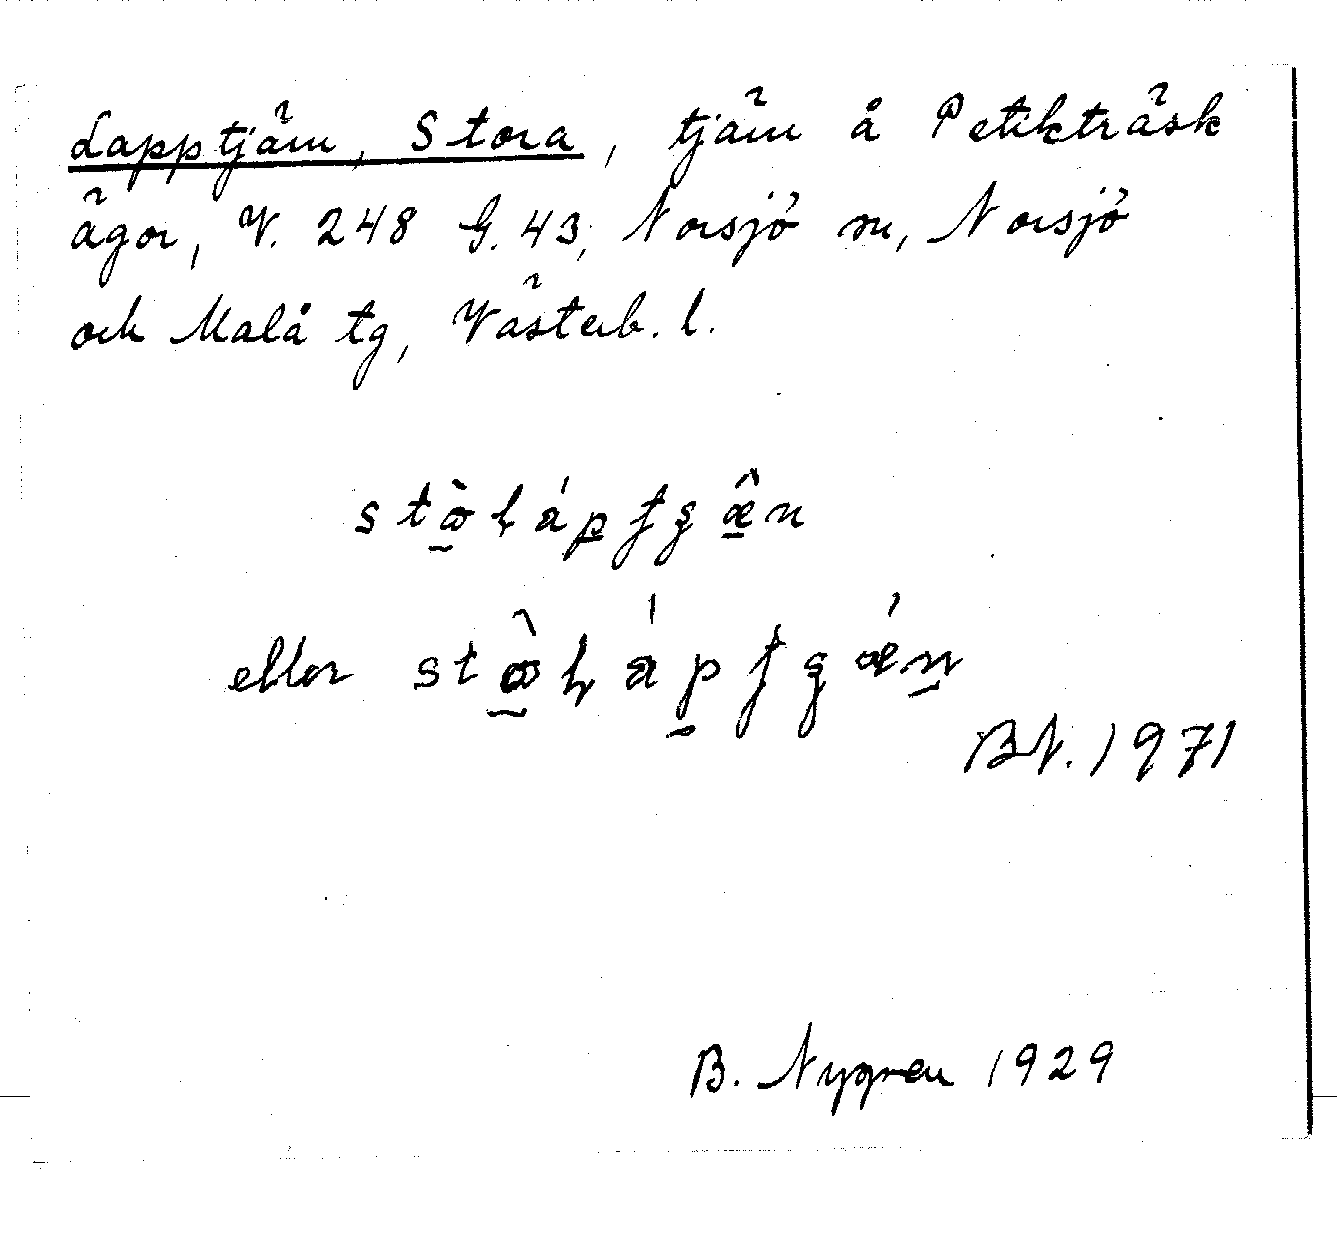 Lapptjärn, Stora, tjärn å Petikträsk
ägor, V. 248 G. 43, Norsjö sn, Norsjö
och Malå tg, Västerb. l.
eller
BN. 1971
B. Nygren 1929